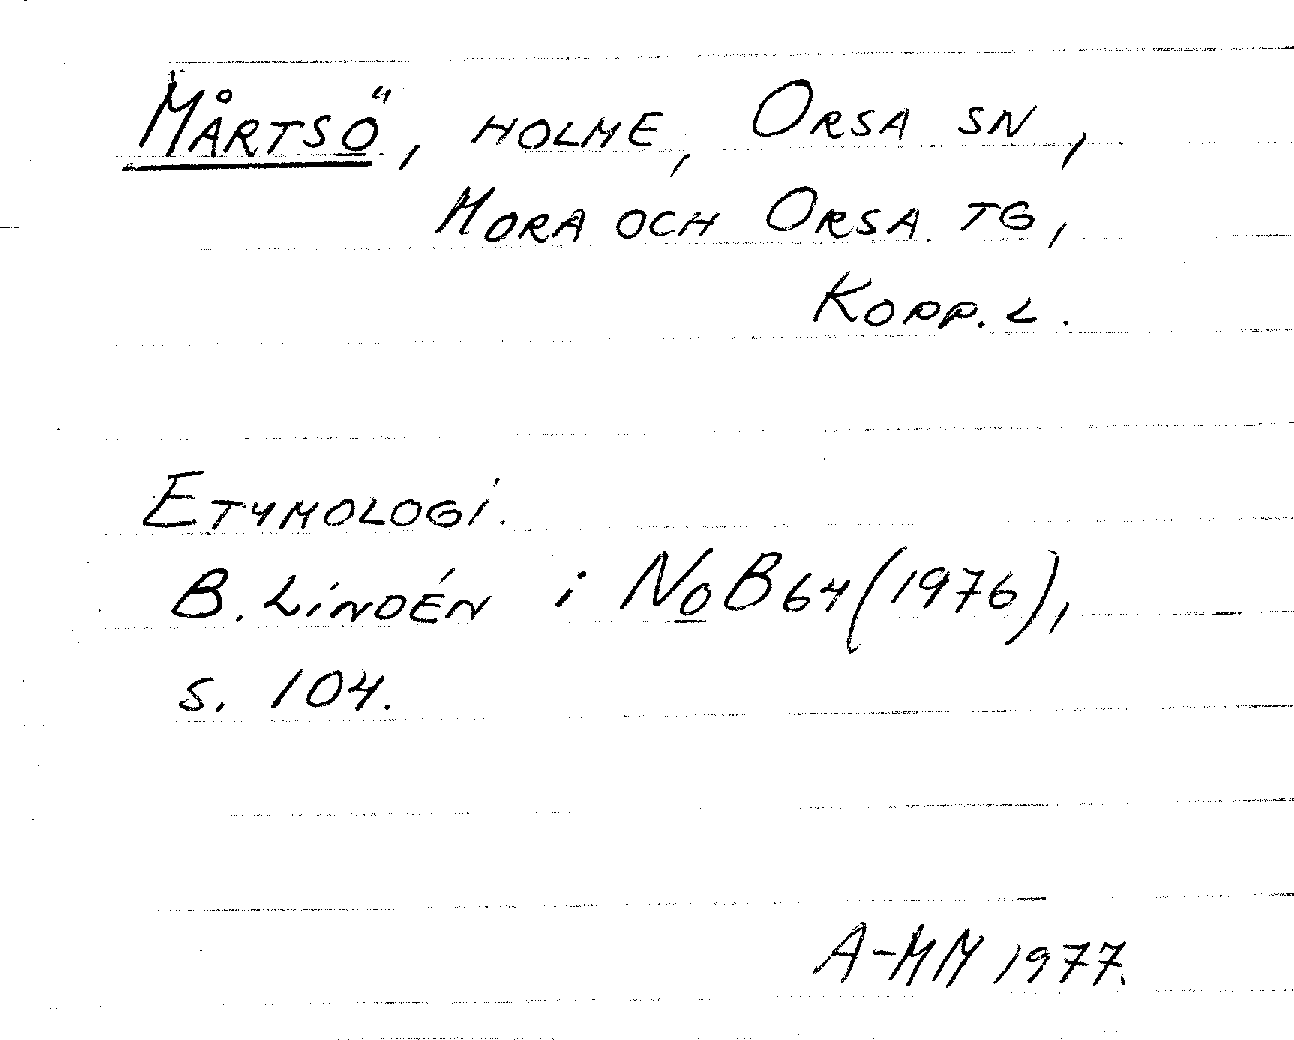 MÅRTSÖ, HOLME, ORSA SN,
MORA OCH ORSA TG,
KOPP. L.
ETYMOLOGI.
B. LINDÉN i NoB 64 (1976),
S. 104.
A-MM 1977.